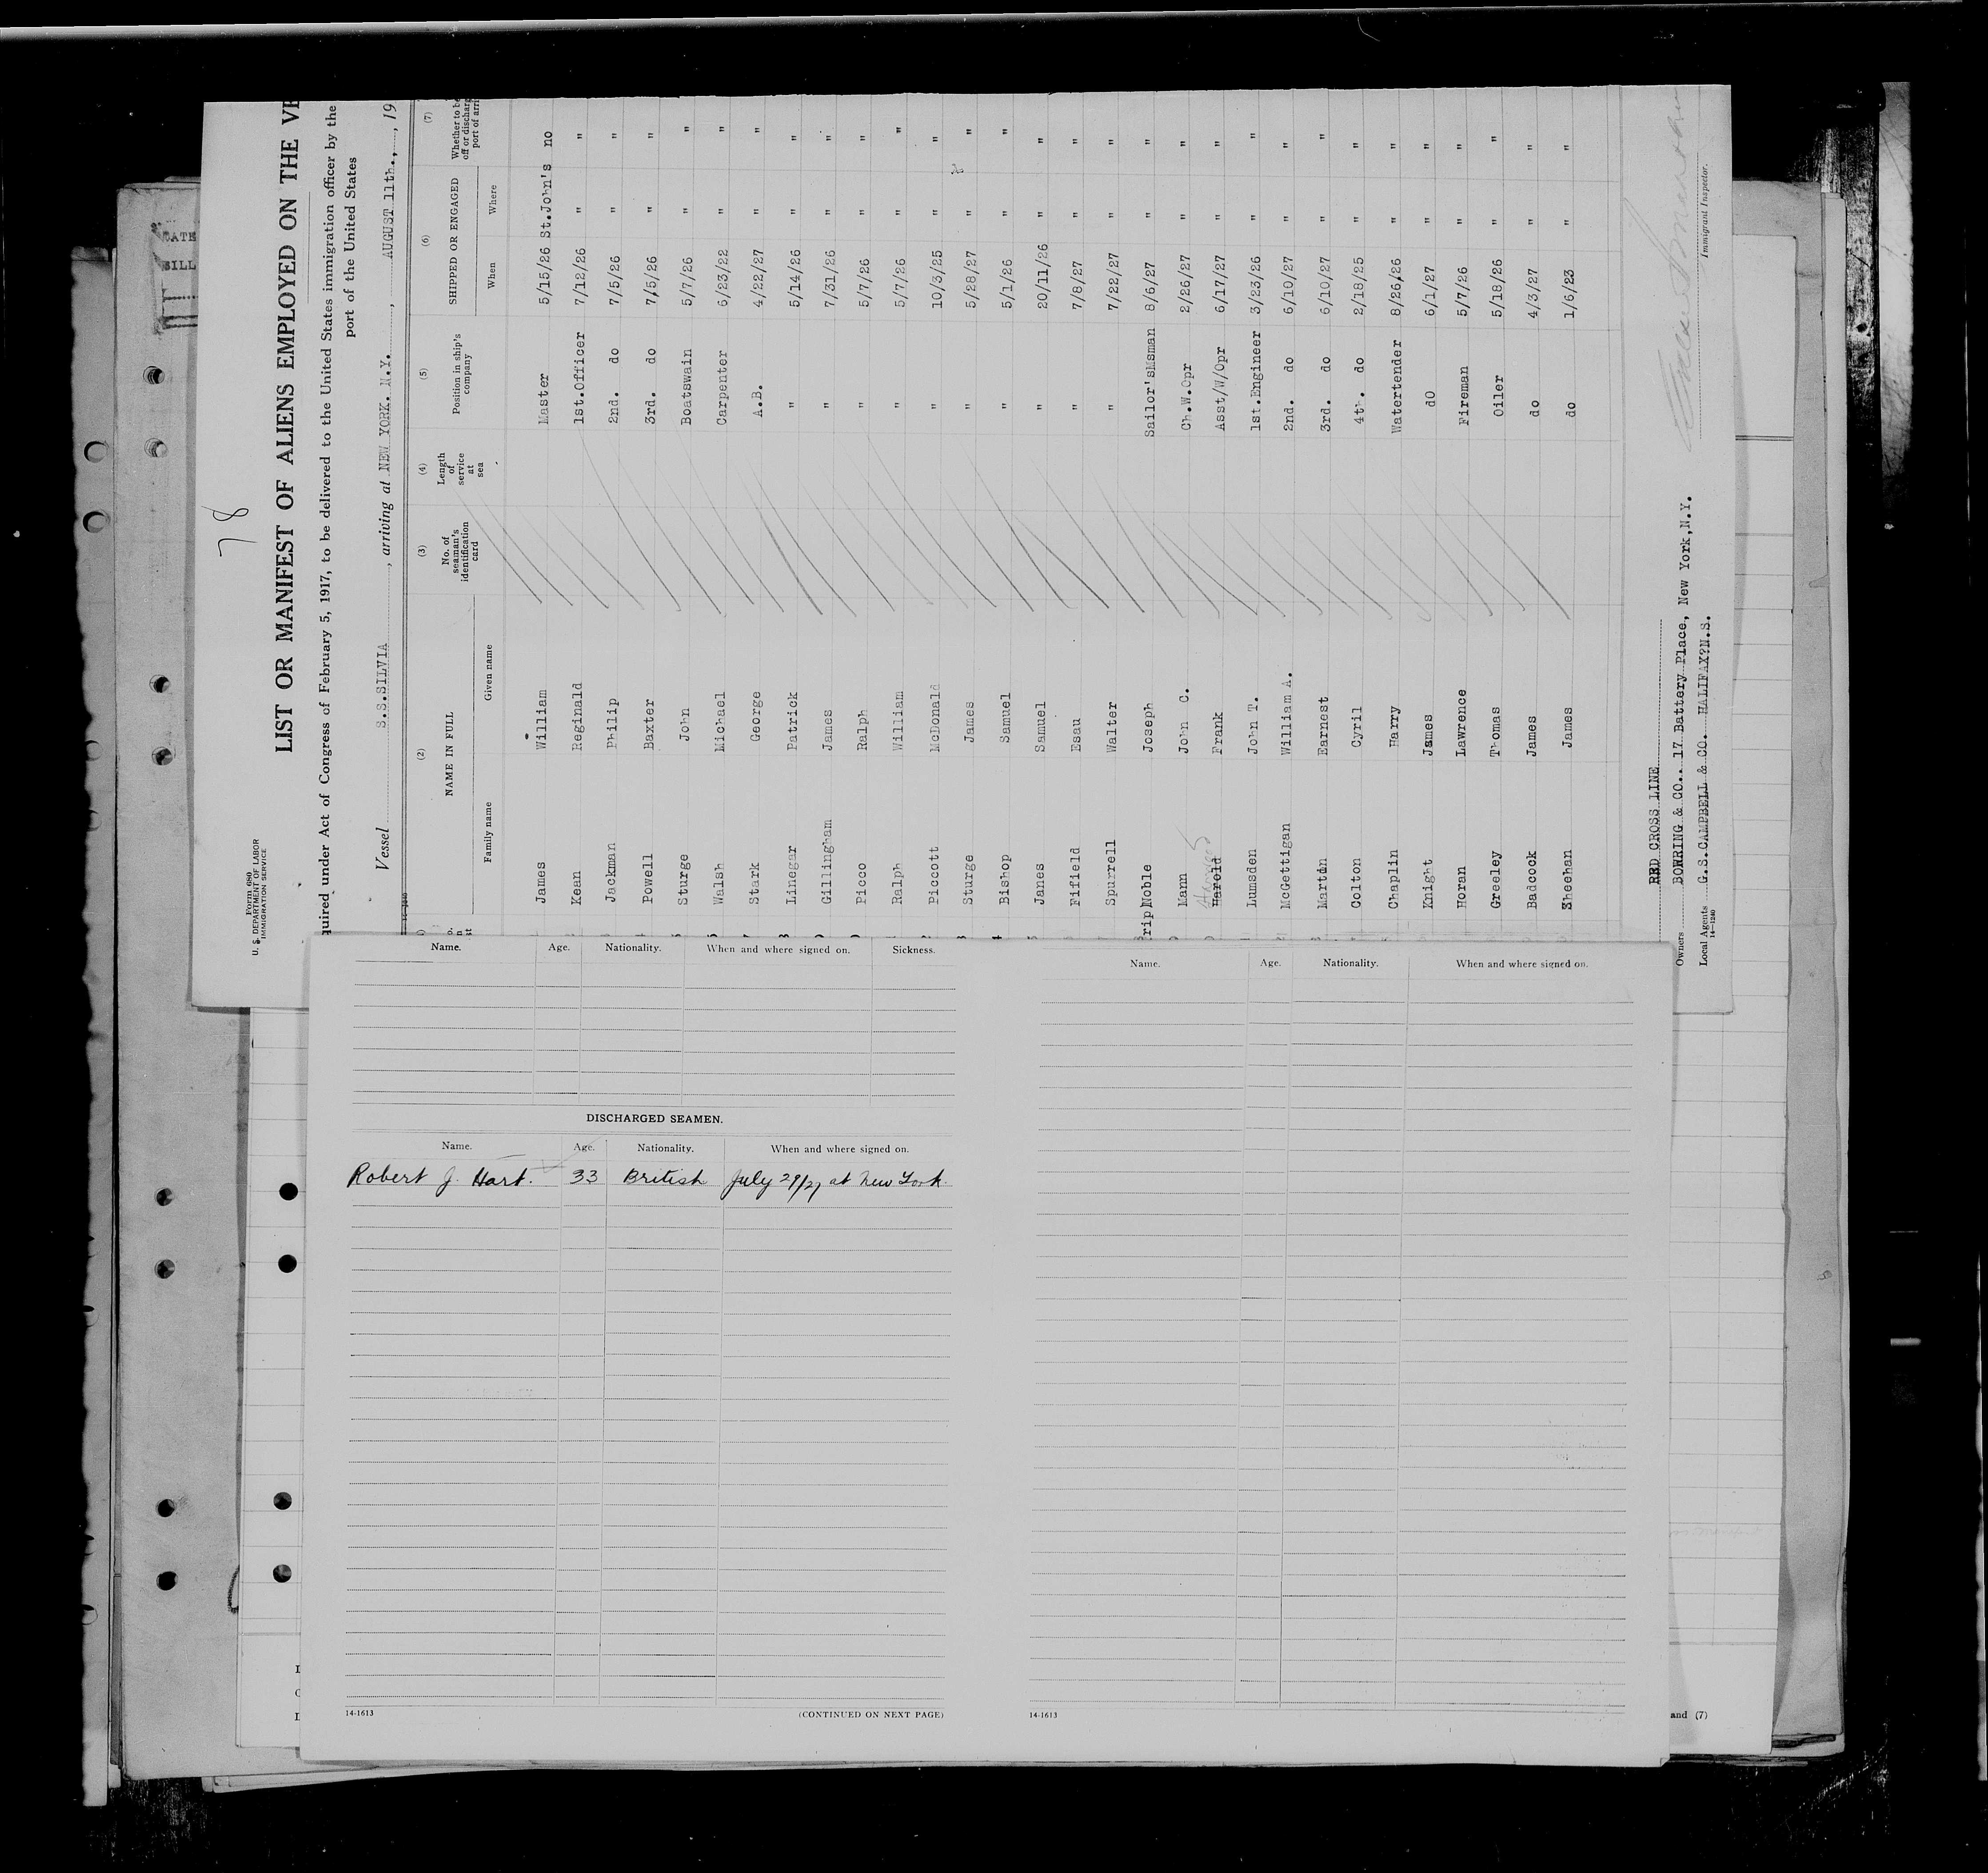 DATE
78
Form 680
U. S. DEPARTMENT OF LABOR
IMMIGRATION SERVICE
LIST OR MANIFEST OF ALIENS EMPLOYED ON THE VE
quired under Act of Congress of February 5, 1917, to be delivered to the United States immigration officer by the
port of the United States
Vessel S.S.SILVIA, arriving at NEW YORK. N.Y., AUGUST 11th., 19
(2) (3) (4) (5) (6) (7)
NAME IN FULL No. of seaman's identification card Length of service at sea Position in ship's company SHIPPED OR ENGAGED Whether to be off or discharg port of arri
Family name Given name When Where
James William Master 5/15/26 St.John's no
Kean Reginald 1st.Officer 7/12/26 " "
Jackman Philip 2nd. do 7/5/26 " "
Powell Baxter 3rd. do 7/5/26 " "
Sturge John Boatswain 5/7/26 " "
Walsh Michael Carpenter 6/23/22 " "
Stark George A.B. 4/22/27 " "
Linegar Patrick " 5/14/26 " "
Gillingham James " 7/31/26 " "
Picco Ralph " 5/7/26 " "
Ralph William " 5/7/26 " "
Piccott McDonald " 10/3/25 " "
Sturge James " 5/28/27 " "
Bishop Samuel " 5/1/26 " "
Janes Samuel " 20/11/26 " "
Fifield Esau " 7/8/27 " "
Spurrell Walter " 7/22/27 " "
rip Noble Joseph Sailor'sMsman 8/6/27 " "
Mann John C. Ch.W.Opr 2/26/27 " "
Harold Frank Asst/W/Opr 6/17/27 " "
Lumsden John T. 1st.Engineer 3/23/26 " "
McGettigan William A. 2nd. do 6/10/27 " "
Martin Earnest 3rd. do 6/10/27 " "
Colton Cyril 4th. do 2/18/25 " "
Chaplin Harry Watertender 8/26/26 " "
Knight James dO 6/1/27 " "
Horan Lawrence Fireman 5/7/26 " "
Greeley Thomas Oiler 5/18/26 " "
Badcock James do 4/3/27 " "
Sheehan James do 1/6/23 " "
RED CROSS LINE
Owners BOWRING & CO.. 17 Battery Place, New York,N.Y.
Local Agents G.S.CAMPBELL & CO. HALIFAX?N.S.
14-1240
Immigrant Inspector.
Name. Age. Nationality. When and where signed on. Sickness.
DISCHARGED SEAMEN.
Name. Age. Nationality. When and where signed on.
Robert J. Hart. 33 British July 29/27 at New York.
14-1613
(CONTINUED ON NEXT PAGE)
Name. Age. Nationality. When and where signed on.
14-1613
and (7)